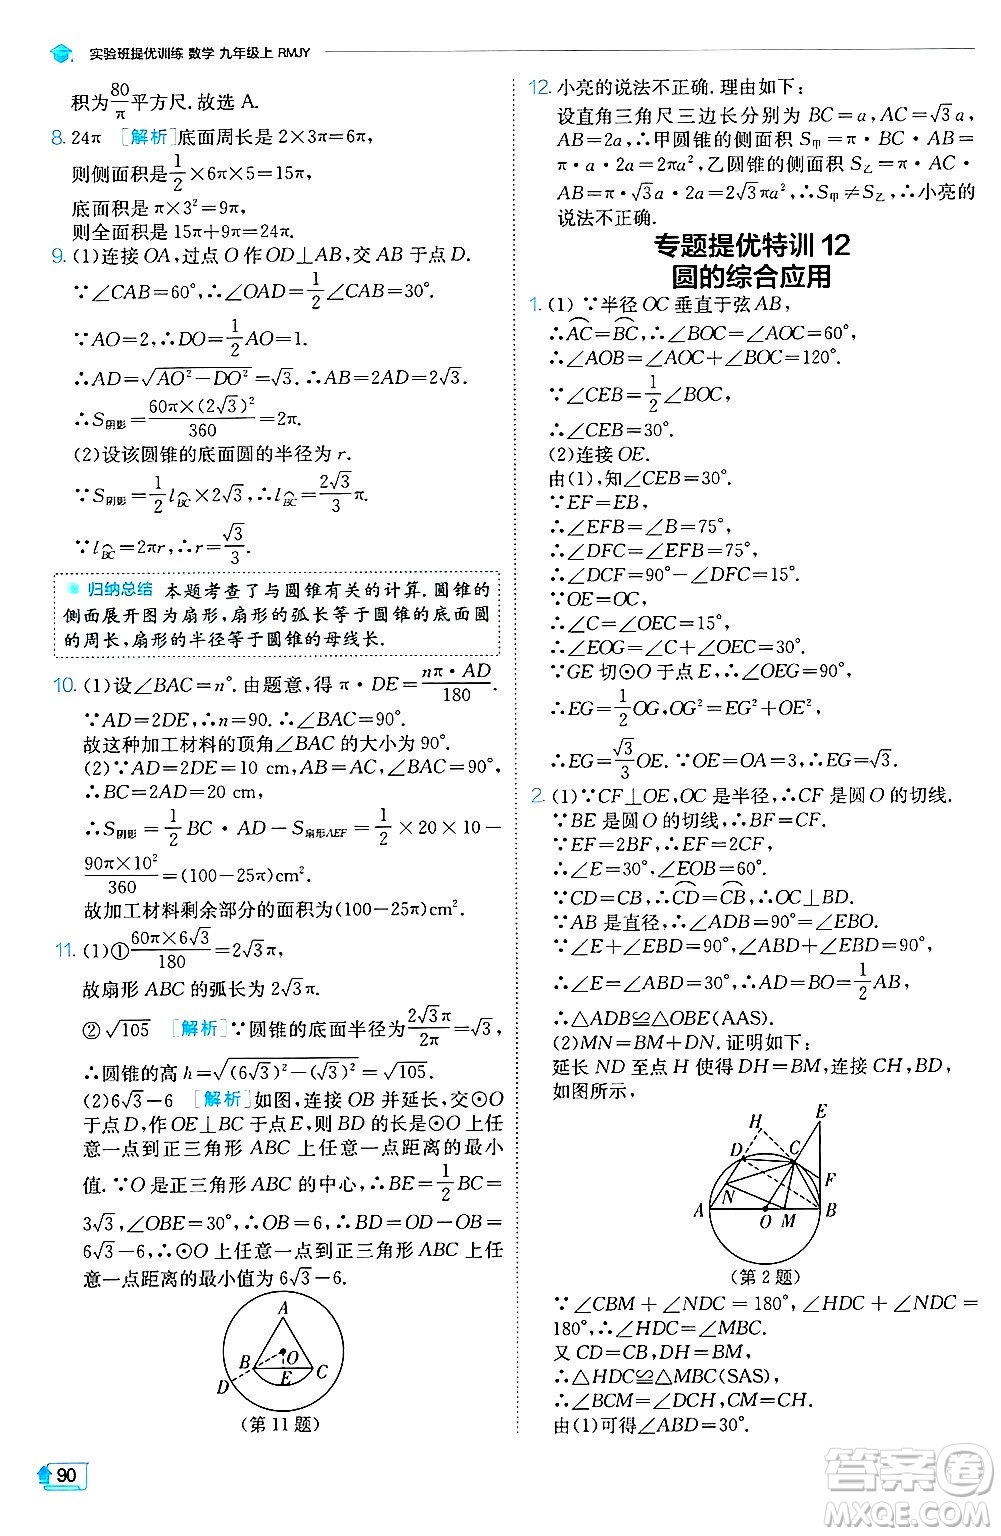 实验班提优训练 数学 九年级上 RMJY
积为80/π平方尺.故选 A.
8. 24π [解析]底面周长是 2×3π=6π,
则侧面积是1/2×6π×5=15π,
底面积是 π×3²=9π,
则全面积是 15π+9π=24π.
9. (1)连接 OA,过点 O 作 OD⊥AB,交 AB 于点 D.
∵∠CAB=60°,∴∠OAD=1/2∠CAB=30°.
∵AO=2,∴DO=1/2AO=1.
∴AD=√(AO²-DO²)=√3.∴AB=2AD=2√3.
∴S阴影=60π×(2√3)²/360=2π.
(2)设该圆锥的底面圆的半径为 r.
∵S阴影=1/2 l⌒BC×2√3,∴l⌒BC=2√3/3 π.
∵l⌒BC=2πr,∴r=√3/3.
归纳总结 本题考查了与圆锥有关的计算.圆锥的
侧面展开图为扇形,扇形的弧长等于圆锥的底面圆
的周长,扇形的半径等于圆锥的母线长.
10. (1)设∠BAC=n°.由题意,得 π·DE=nπ·AD/180.
∵AD=2DE,∴n=90.∴∠BAC=90°.
故这种加工材料的顶角∠BAC 的大小为 90°.
(2)∵AD=2DE=10 cm,AB=AC,∠BAC=90°,
∴BC=2AD=20 cm.
∴S阴影=1/2 BC·AD-S扇形AEF=1/2×20×10-
90π×10²/360=(100-25π)cm².
故加工材料剩余部分的面积为(100-25π)cm².
11. (1)①60π×6√3/180=2√3π,
故扇形 ABC 的弧长为 2√3π.
②√105 [解析]∵圆锥的底面半径为2√3π/2π=√3,
∴圆锥的高 h=√((6√3)²-(√3)²)=√105.
(2)6√3-6 [解析]如图,连接 OB 并延长,交⊙O
于点 D,作 OE⊥BC 于点 E,则 BD 的长是⊙O 上任
意一点到正三角形 ABC 上任意一点距离的最小
值.∵O 是正三角形 ABC 的中心,∴BE=1/2BC=
3√3,∠OBE=30°,∴OB=6,∴BD=OD-OB=
6√3-6,∴⊙O 上任意一点到正三角形 ABC 上任
意一点距离的最小值为 6√3-6.
A
B O
E C
D
(第 11 题)
90
12. 小亮的说法不正确.理由如下:
设直角三角尺三边长分别为 BC=a,AC=√3a,
AB=2a,∴甲圆锥的侧面积 S甲=π·BC·AB=
π·a·2a=2πa²,乙圆锥的侧面积 S乙=π·AC·
AB=π·√3a·2a=2√3πa²,∴S甲≠S乙,∴小亮的
说法不正确.
专题提优特训 12
圆的综合应用
1. (1)∵半径 OC 垂直于弦 AB,
∴⌒AC=⌒BC,∴∠BOC=∠AOC=60°,
∴∠AOB=∠AOC+∠BOC=120°.
∵∠CEB=1/2∠BOC,
∴∠CEB=30°.
(2)连接 OE.
由(1),知∠CEB=30°.
∵EF=EB,
∴∠EFB=∠B=75°,
∴∠DFC=∠EFB=75°,
∴∠DCF=90°-∠DFC=15°.
∵OE=OC,
∴∠C=∠OEC=15°,
∴∠EOG=∠C+∠OEC=30°.
∵GE 切⊙O 于点 E,∴∠OEG=90°,
∴EG=1/2OG,OG²=EG²+OE²,
∴EG=√3/3OE.∵OE=OA=3,∴EG=√3.
2. (1)∵CF⊥OE,OC 是半径,∴CF 是圆 O 的切线.
∵BE 是圆 O 的切线,∴BF=CF.
∵EF=2BF,∴EF=2CF,
∴∠E=30°,∠EOB=60°.
∵CD=CB,∴⌒CD=⌒CB,∴OC⊥BD.
∵AB 是直径,∴∠ADB=90°=∠EBO.
∵∠E+∠EBD=90°,∠ABD+∠EBD=90°,
∴∠E=∠ABD=30°,∴AD=BO=1/2AB,
∴△ADB≌△OBE(AAS).
(2)MN=BM+DN.证明如下:
延长 ND 至点 H 使得 DH=BM,连接 CH,BD,
如图所示,
H E
D C
N F
A O M B
(第 2 题)
∵∠CBM+∠NDC=180°,∠HDC+∠NDC=
180°,∴∠HDC=∠MBC.
又 CD=CB,DH=BM,
∴△HDC≌△MBC(SAS),
∴∠BCM=∠DCH,CM=CH.
由(1)可得∠ABD=30°,
答案圈
MXQE.COM